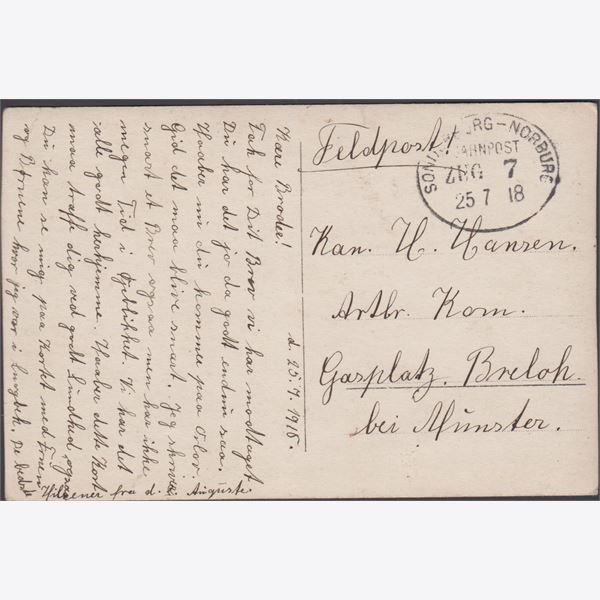 d 25.7.1918.
Kære Broder!
Tak for Dit Brev vi har modtaget
Du har det jo da godt endnu saa.
Haaber nu du kommer paa Orlov.
Gid det maa blive snart. Jeg skriver
snart et Brev ogsaa men har ikke
megen Tid i Øjeblikket. Vi har det
alle godt herhjemme. Haaber dette Kort
maa træffe dig ved godt Sundhed, ogsaa
Du kan se mig paa Kortet med
og Børnene hvor jeg var i De bedste
Hilsener fra d. Auguste
Feldpost!
SONDERBURG-NORBURG
BAHNPOST
ZUG 7
25 7 18
Kan. H. Hansen.
Artlr. Kom.
Gasplatz. Breloh.
bei Münster.